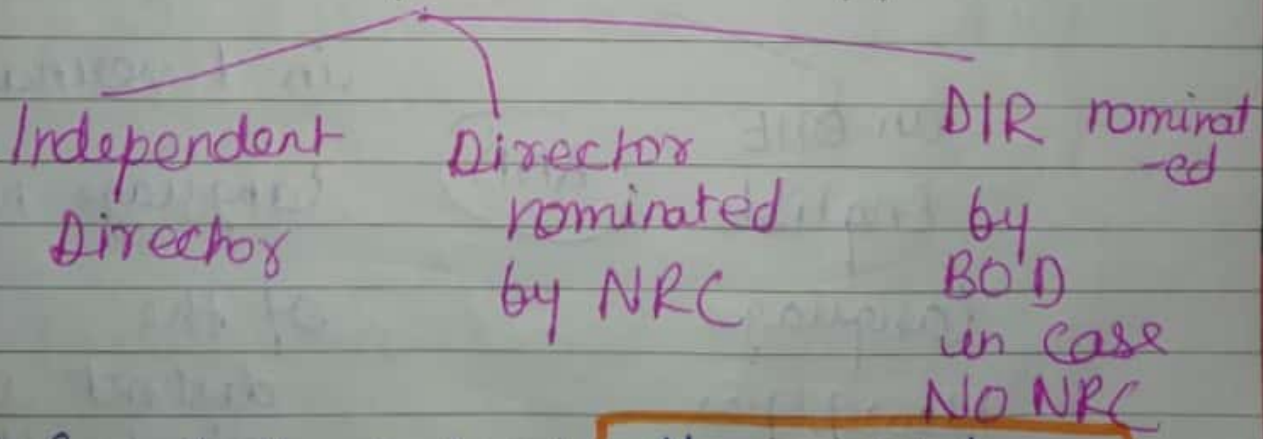 Independent
Director
Director
nominated
by NRC
DIR nominat
-ed
by
BOD
in case
NO NRC